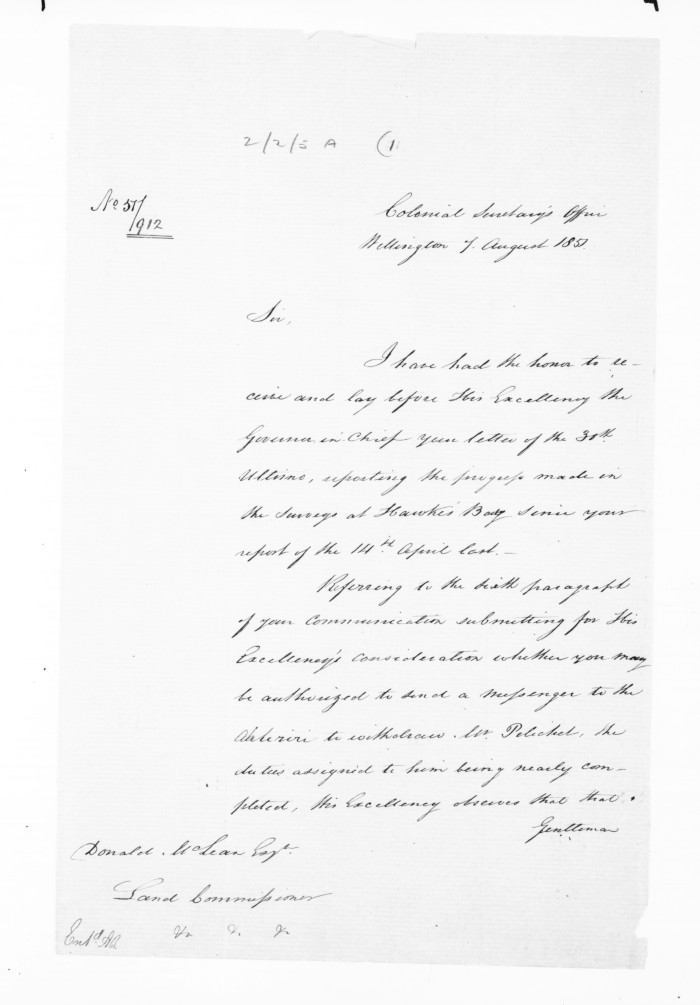 2/2/5 A (1
No 51/
/912
Colonial Secretary's Office
Wellington 7. August 1851.
Sir,
I have had the honor to re-
ceive and lay before His Excellency the
Governor in Chief your letter of the 30th
Ultimo, reporting the progress made in
the surveys at Hawke's Bay since your
report of the 14th April last. -
Referring to the sixth paragraph
of your communication submitting for His
Excellency's consideration whether you may
be authorized to send a messenger to the
Ahuriri to withdraw Mr. Pelichet, the
duties assigned to him being nearly com-
pleted, His Excellency observes that that
Gentleman
Donald McLean Esqr.
Land Commissioner
&c &c &c
Entd